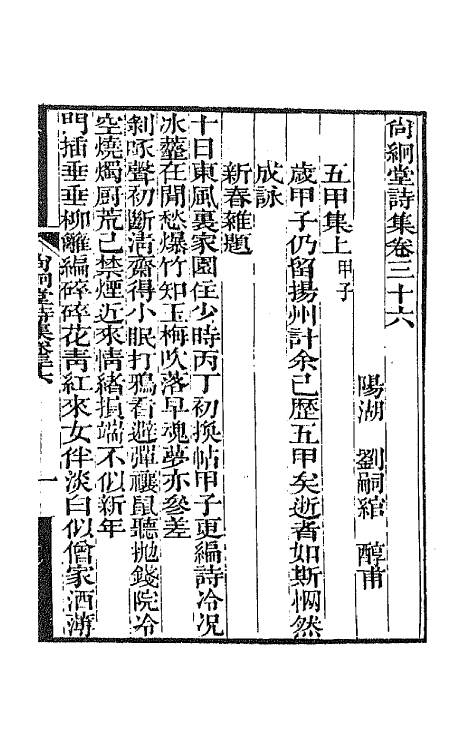 尙絅堂詩集卷三十六
陽湖 劉嗣綰 醇甫
五甲集上 甲子
歲甲子仍留揚州計余已歷五甲矣逝者如斯惘然
成詠
新春雜題
十日東風裏家園住少時丙丁初換帖甲子更編詩冷況
冰虀在閒愁爆竹知玉梅吹落早魂夢亦參差
剝啄聲初斷淸齋得小眠打鴉看避彈禳鼠聽拋錢院冷
空燒燭厨荒已禁煙近來情緒損端不似新年
門插垂垂柳籬編碎碎花靑紅來女伴淡白似僧家酒薄
尙絅堂詩集卷三十六
一